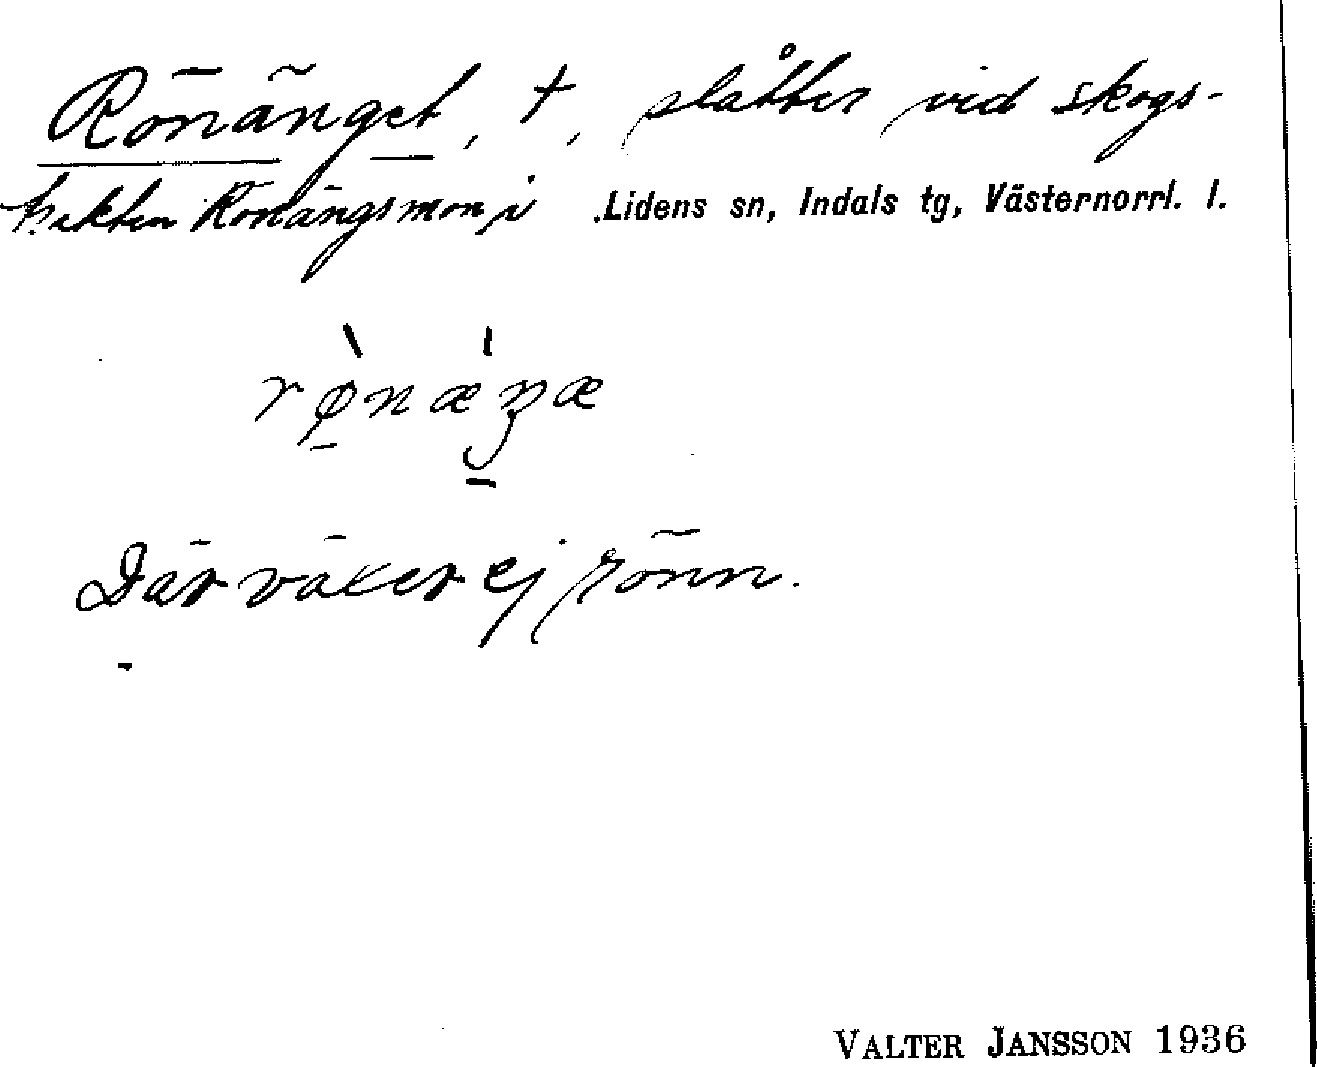 Rönänget, †, slåtter vid skogs-
trakten Rönängsmon i Lidens sn, Indals tg, Västernorrl. l.
rø̀nǽŋæ
Där växer ej rönn.
VALTER JANSSON 1936